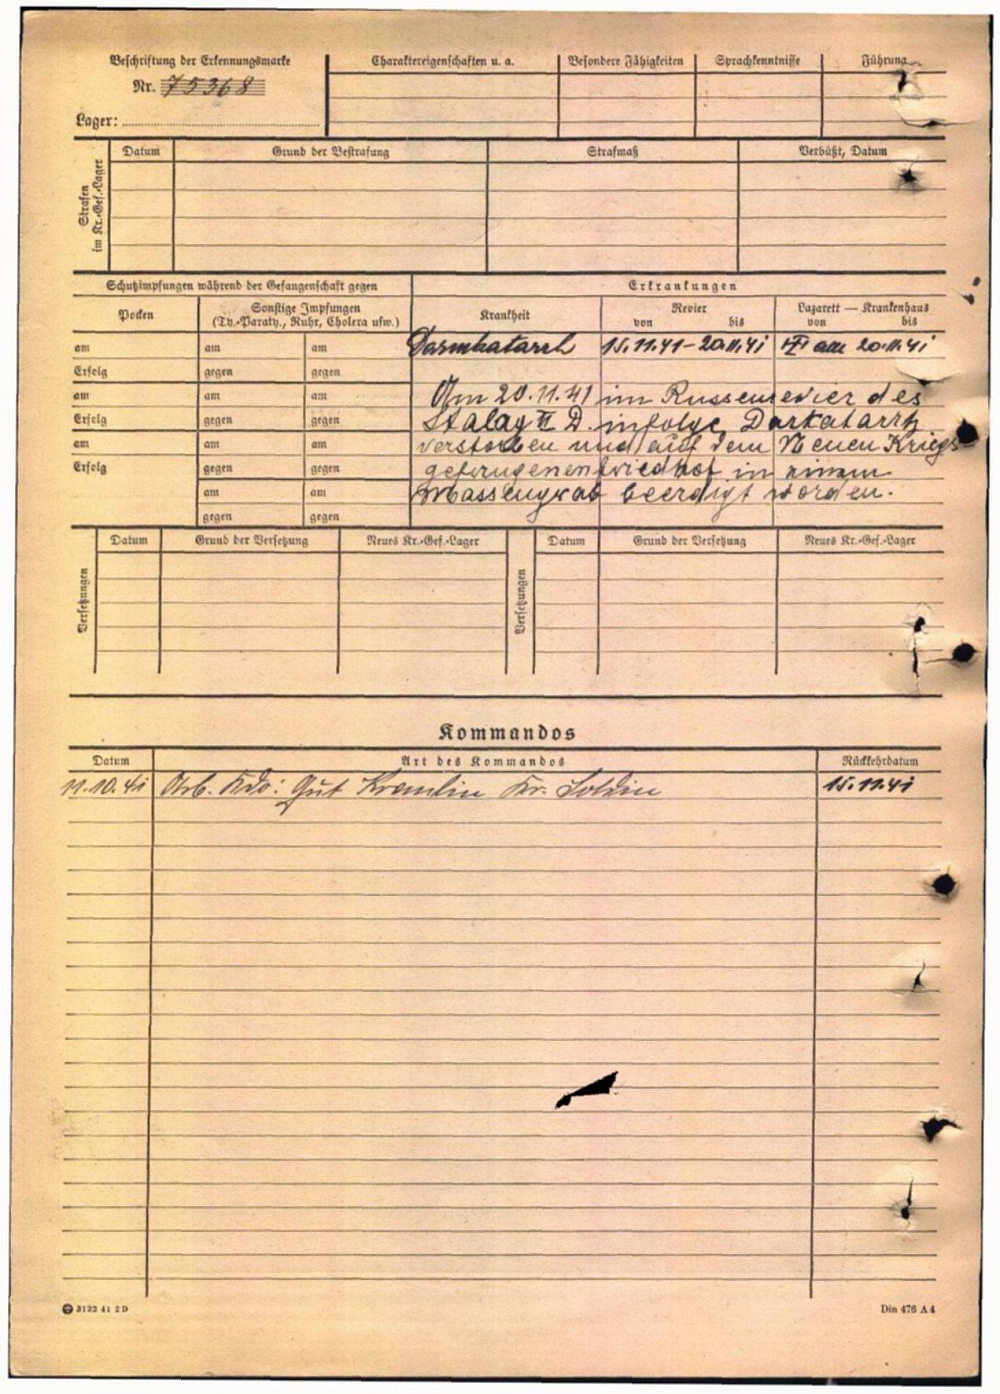 Beschriftung der Erkennungsmarke
Nr. 75368
Lager:
Charaktereigenschaften u. a.
Besondere Fähigkeiten
Sprachkenntnisse
Führung
Strafen
im Kr.-Gef.-Lager
Datum
Grund der Bestrafung
Strafmaß
Verbüßt, Datum
Schutzimpfungen während der Gefangenschaft gegen
Erkrankungen
Pocken
Sonstige Impfungen
(Ty.-Paraty., Ruhr, Cholera usw.)
Krankheit
Revier
von bis
Lazarett — Krankenhaus
von bis
am am am
Darmkatarrh 15.11.41 - 20.11.41 am 20.11.41
Erfolg gegen gegen
am am am
Am 20.11.41 im Russenrevier des
Erfolg gegen gegen
Stalag II D. infolge Darkatarrh
am am am
verstorben und auf dem Neuen Kriegs
Erfolg gegen gegen
gefangenenfriedhof in einem
am am
Massengrab beerdigt worden.
gegen gegen
Versetzungen
Datum Grund der Versetzung Neues Kr.-Gef.-Lager
Versetzungen
Datum Grund der Versetzung Neues Kr.-Gef.-Lager
Kommandos
Datum Art des Kommandos Rückkehrdatum
11.10.41 Arb. Kdo: Gut Kremlin Kr. Soldin 15.11.41
3132 41 2 D
Din 476 A 4